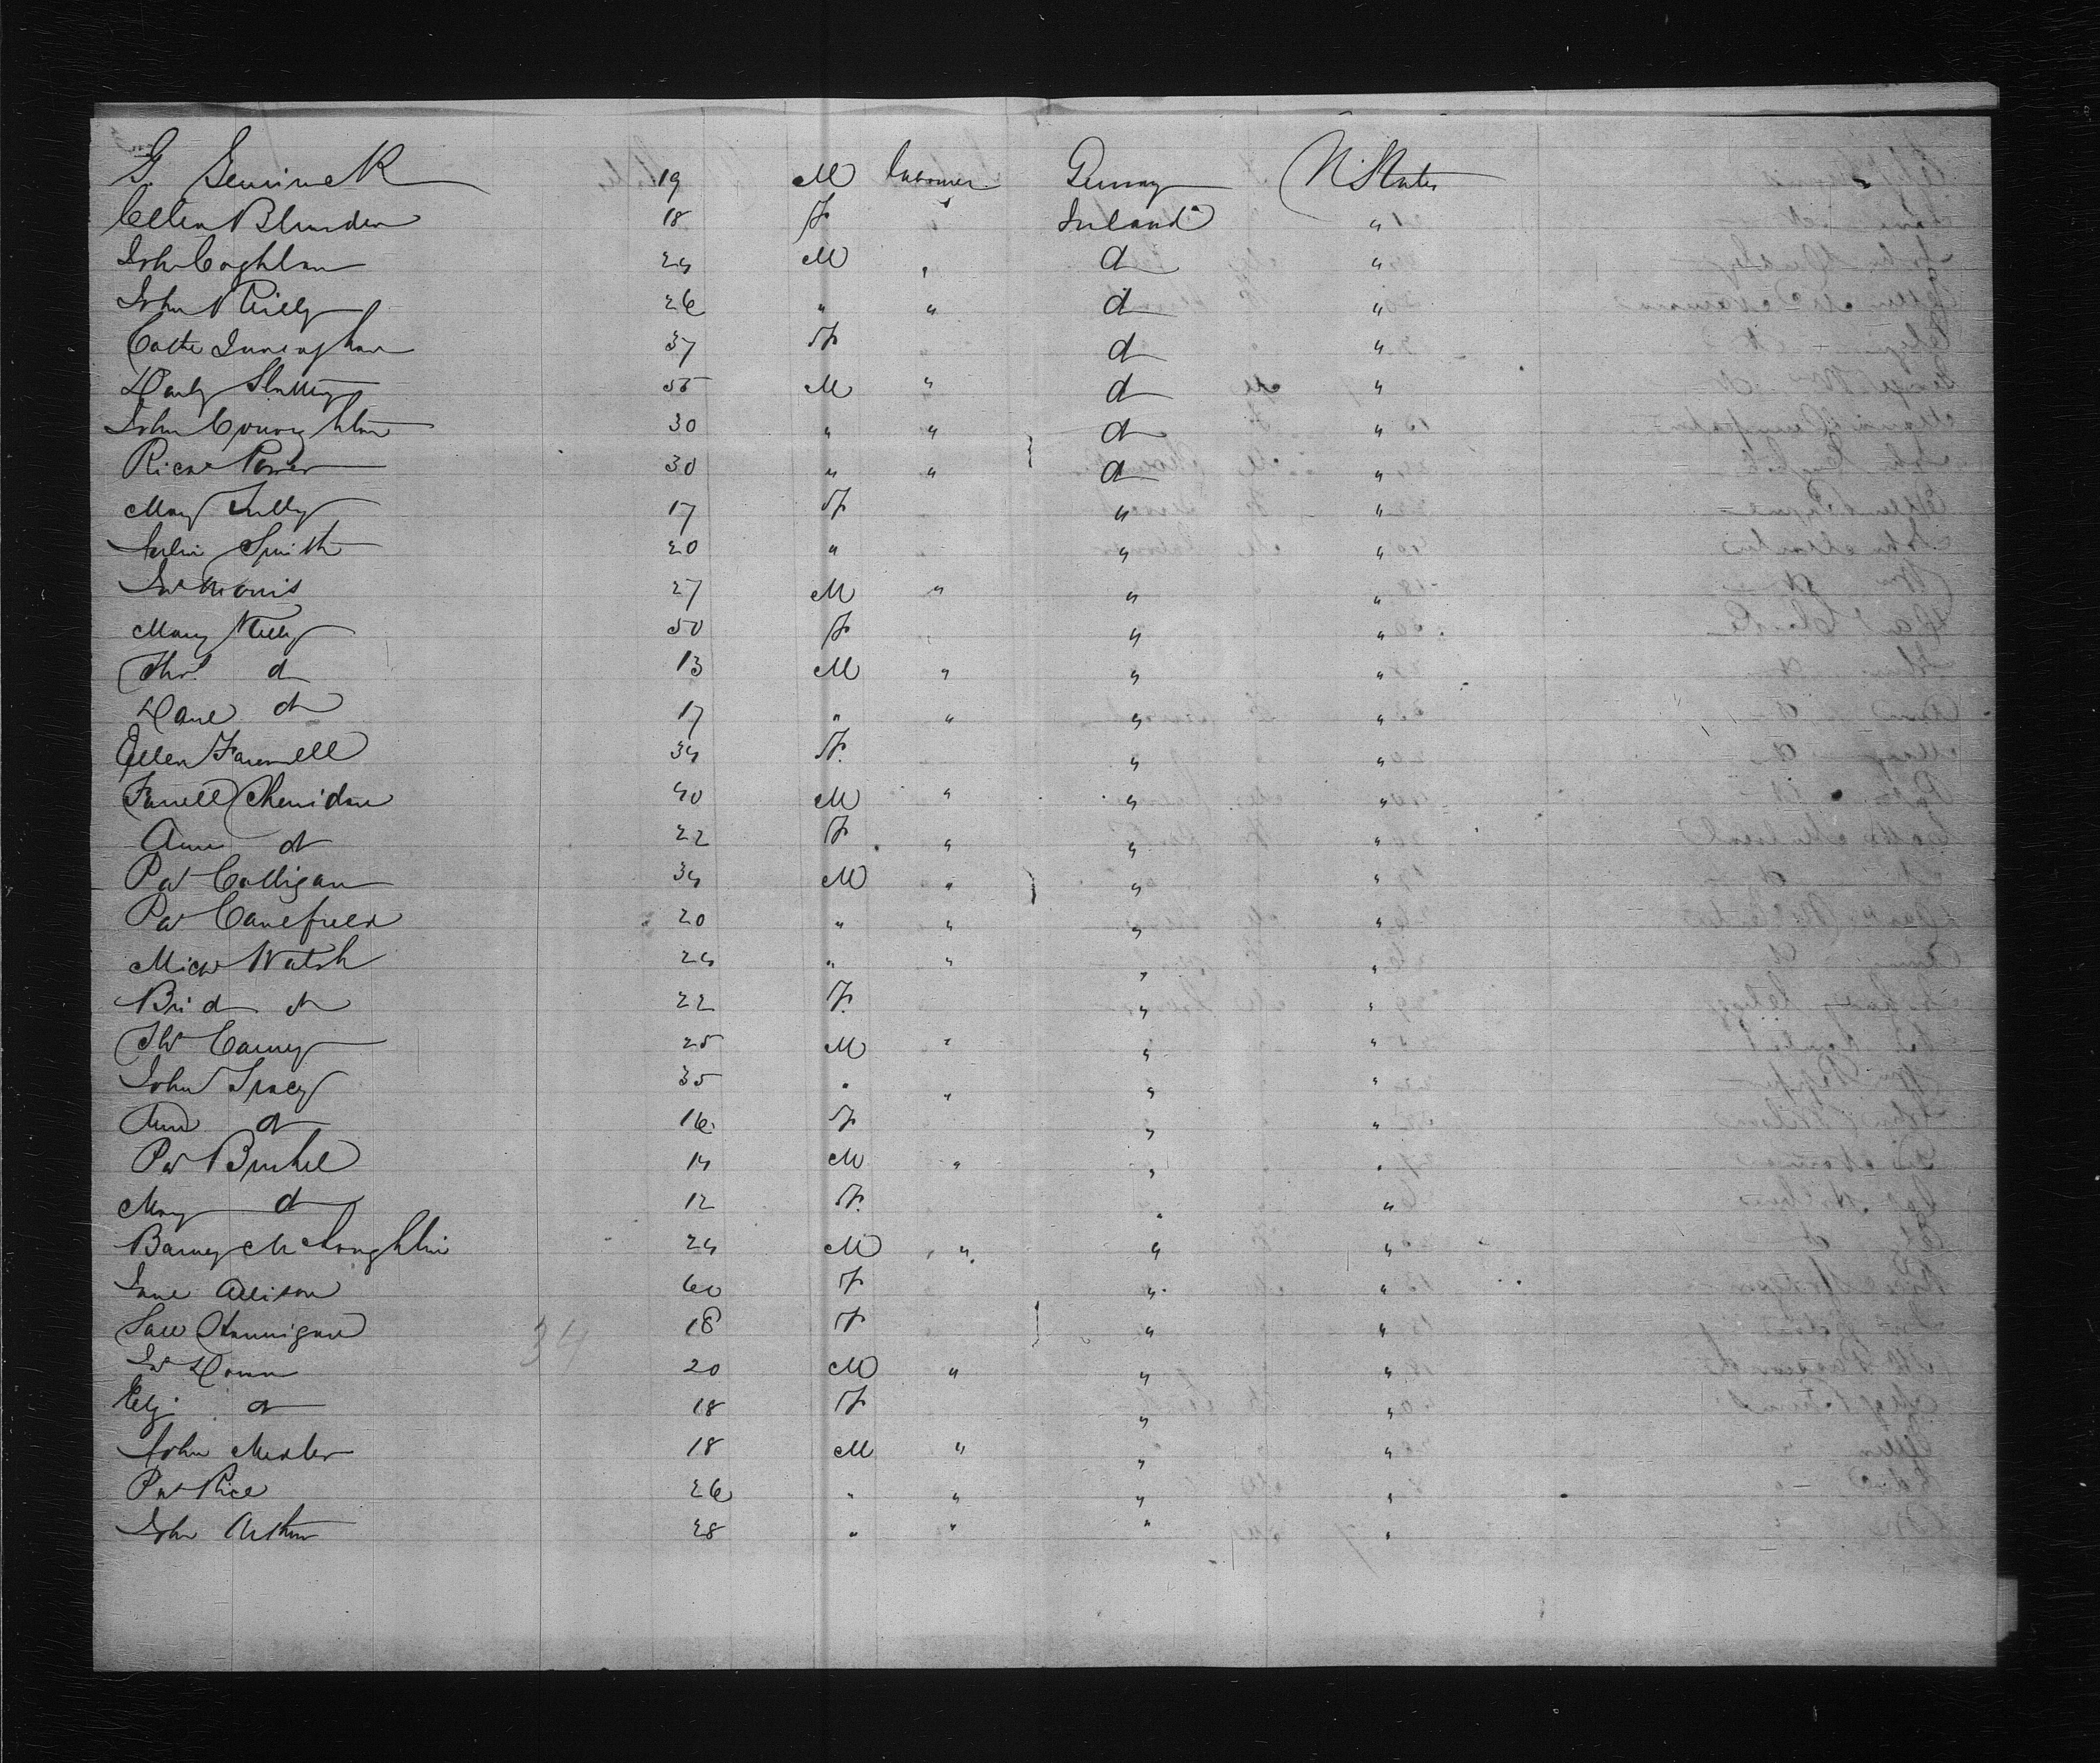 G. 19 M Labourer Germany U States
Ellen Blunden 18 F " Ireland "
John Coghlan 24 M " d "
John Reilly 26 " " d "
Cathe Cunningham 37 F d "
Darby Slattery 55 M " d "
John Conoughlan 30 " " d "
Richd Power 30 " " d "
Mary Tully 17 F " "
Julia Smith 20 " " "
Jas Morris 27 M " " "
Mary Kelly 50 F " " "
Thos d 13 M " " "
Danl d 17 " " " "
Ellen Farrell 34 F. " "
Farrell Sheridan 40 M " " "
Ann d 22 F " " "
Pat Colligan 34 M " " "
Pat Canefield 20 " " " "
Michl Walsh 24 " " " "
Brid d 22 F. " "
Ths Carney 25 M " " "
John Tracey 35 " " " "
Ann d 16 F " "
Pat 14 M " " "
Mary d 12 F. " "
Barney McLoughlin 24 M " " "
Jane Allison 60 F " "
Hannigan 18 F " "
34
Jas Doran 20 M " " "
Eliz d 18 F " "
John 18 M " " "
Pat Rice 26 " " " "
John Arthur 28 " " " "